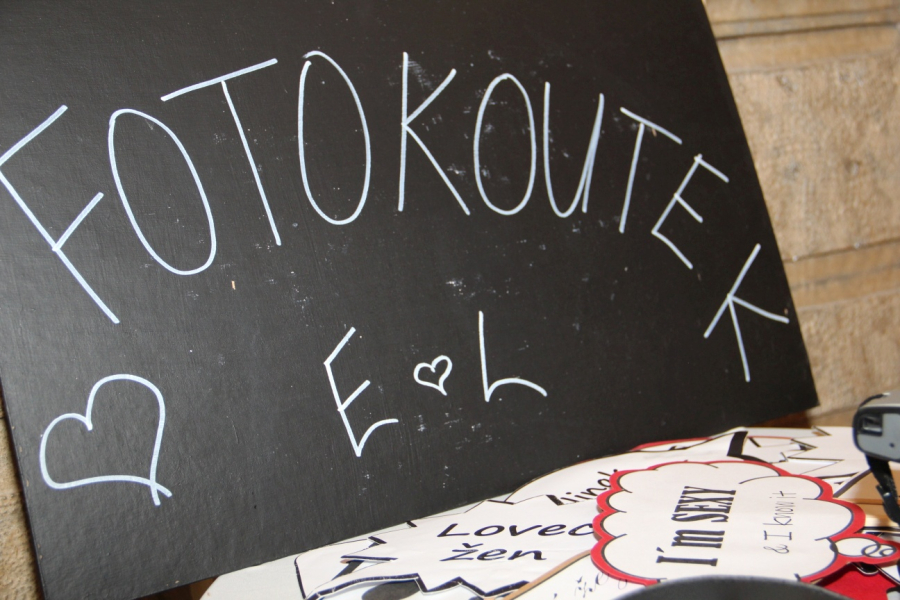 FOTOKOUTEK
E L
Lovec
žen
I'm SEXY
& I know it